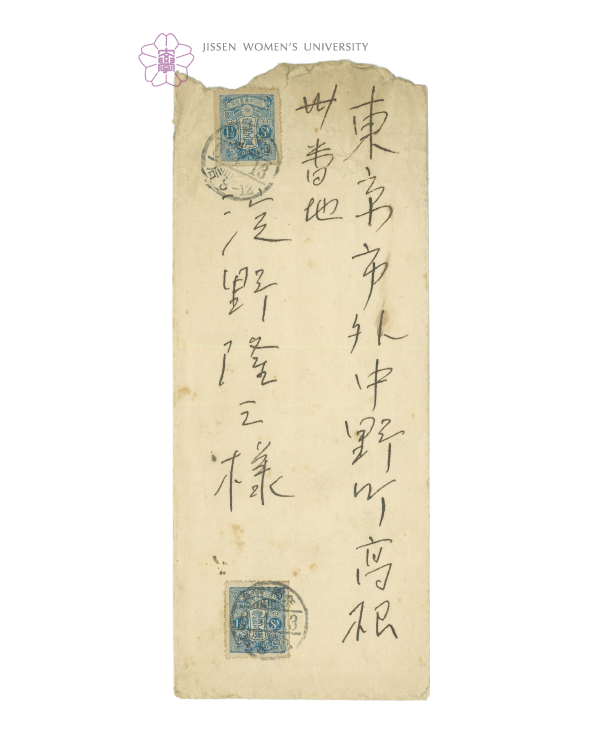 JISSEN WOMEN'S UNIVERSITY
東京市外中野町高根
卅番地
淀野隆三様